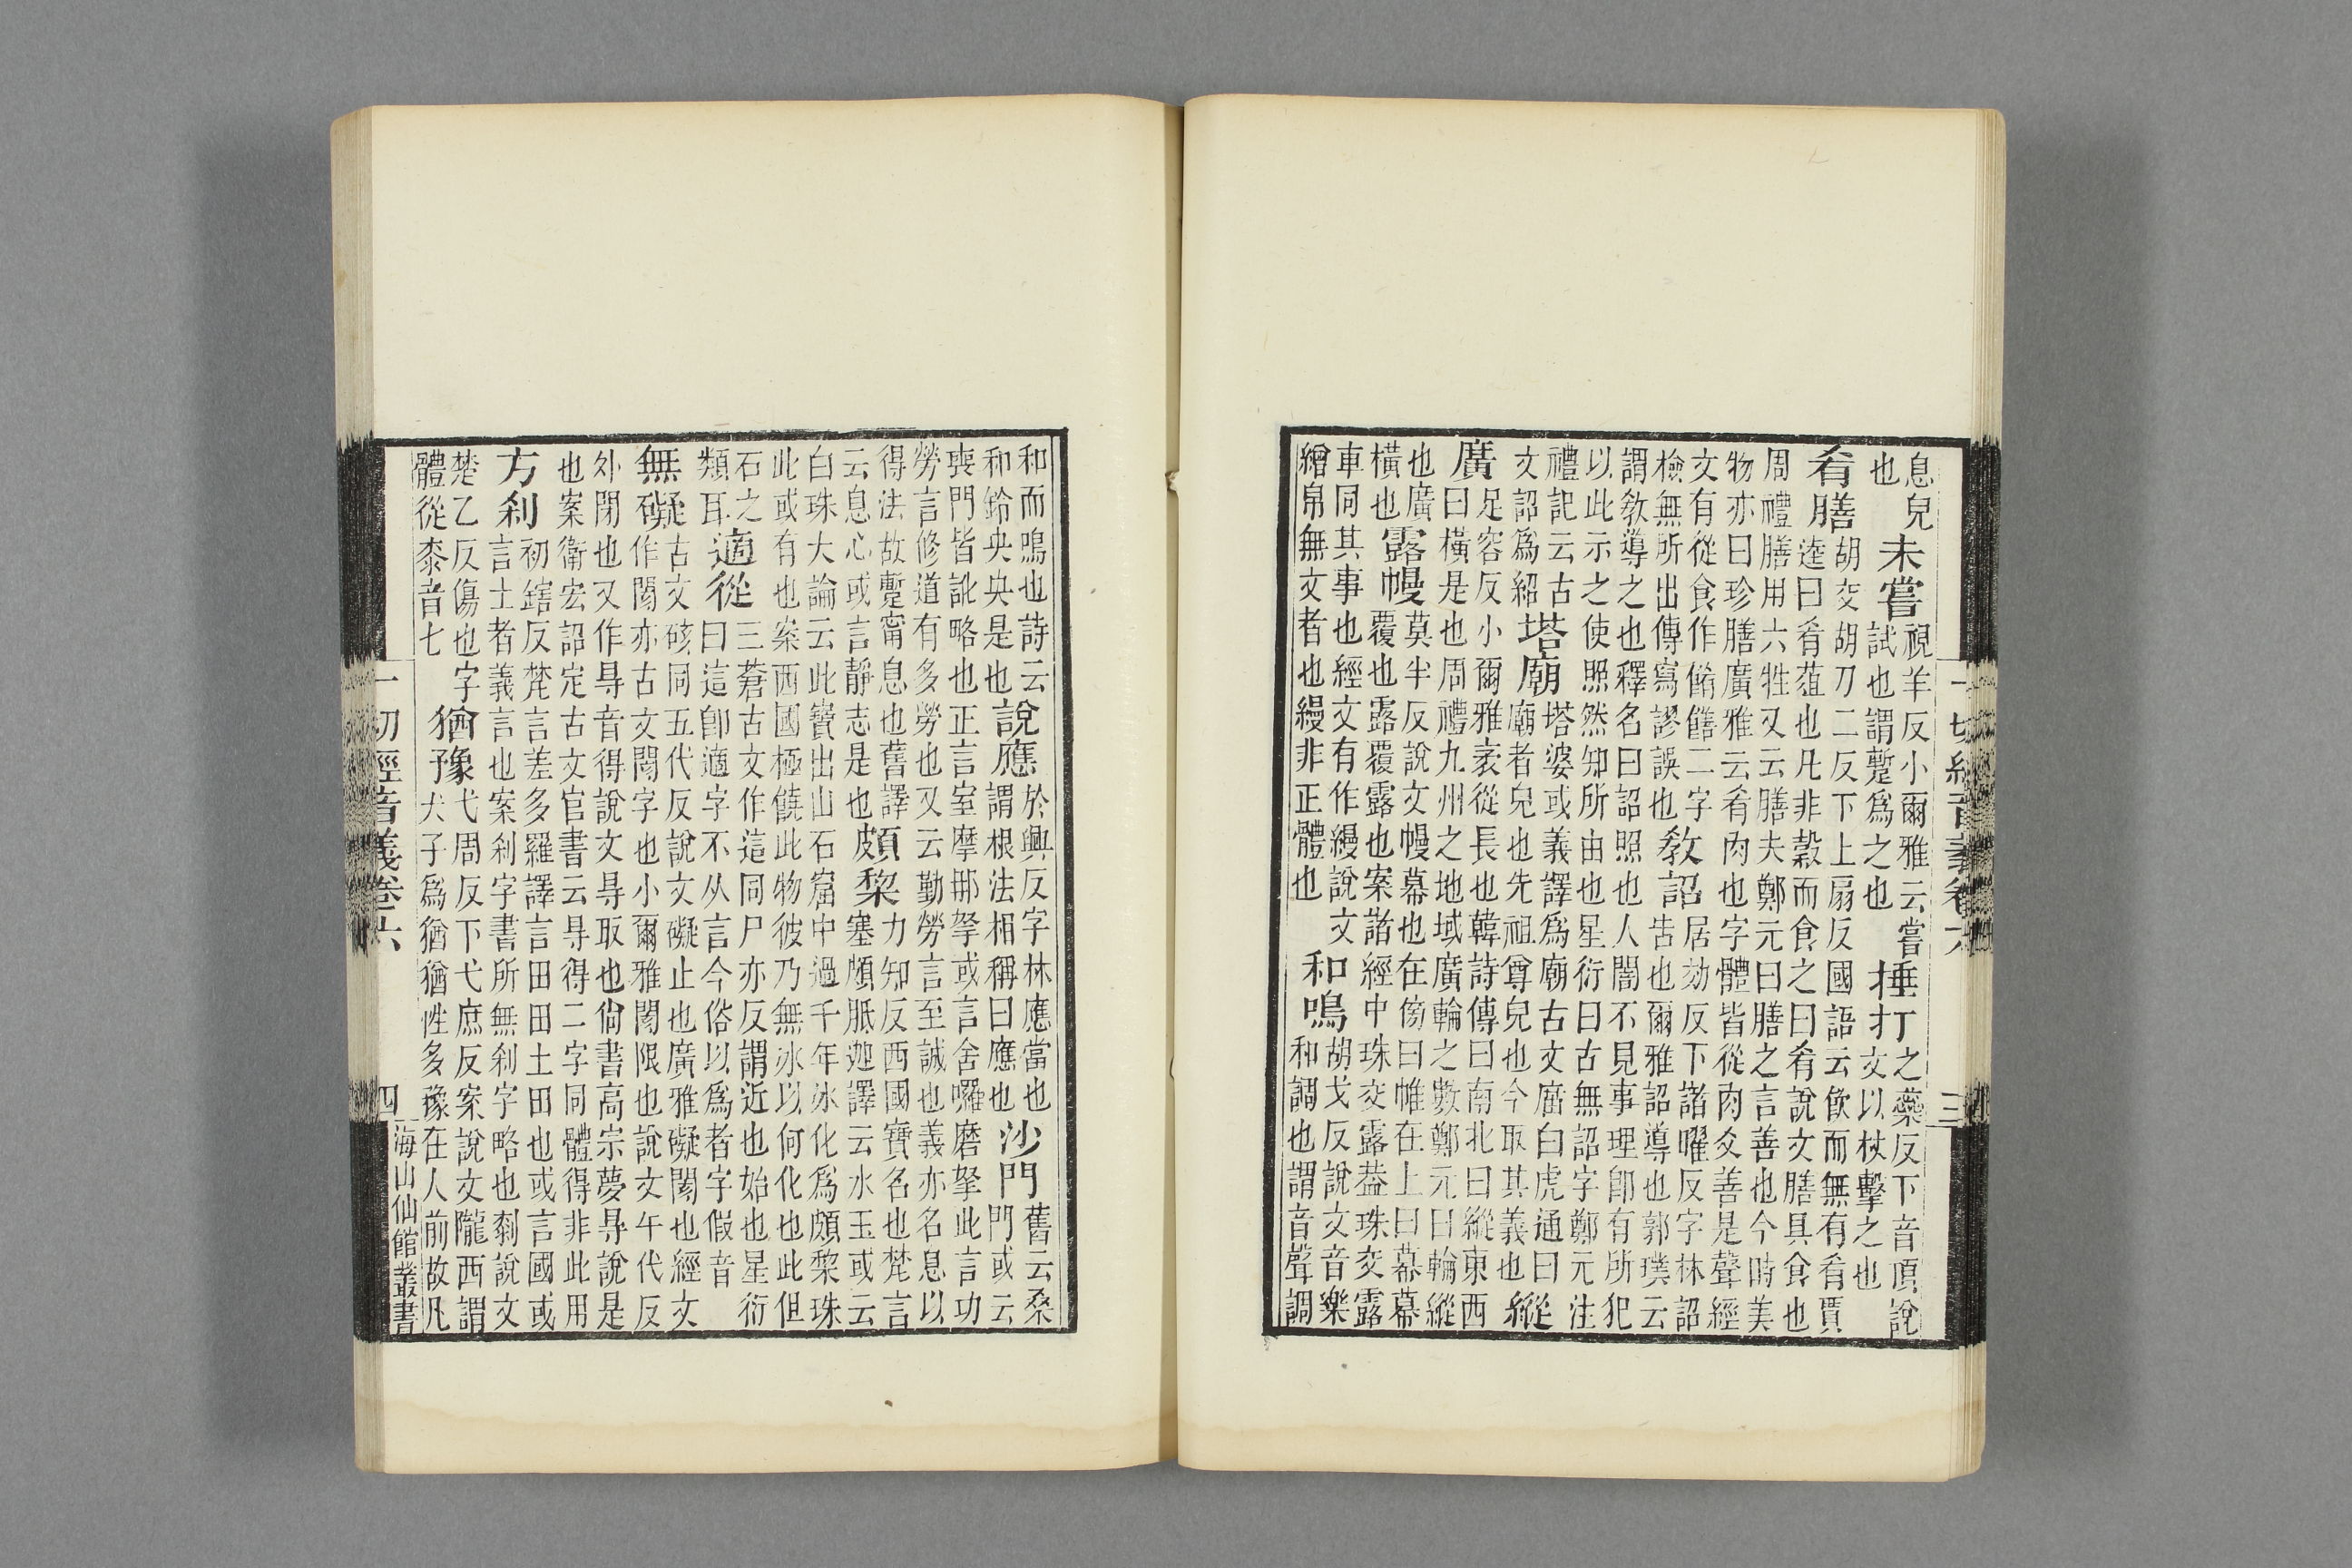 一切經音義卷六
三
息皃
也
未嘗
視羊反小爾雅云嘗
試也謂蹔爲之也
捶打
之蘂反下音頂說
文以杖擊之也
肴膳
胡交胡刀二反下上扇反國語云飲而無有肴賈
逵曰肴葅也凡非穀而食之曰肴說文膳具食也
周禮膳用六牲又云膳夫鄭元曰膳之言善也今時美
物亦曰珍膳廣雅云肴肉也字體皆從肉爻善是聲經
文有從食作餚饍二字
檢無所出傳寫謬誤也
敎詔
居効反下諸曜反字林詔
告也爾雅詔導也郭璞云
謂敎導之也釋名曰詔照也人闇不見事理卽有所犯
以此示之使照然知所由也星衍曰古無詔字鄭元注
禮記云古
文詔爲紹
塔廟
塔婆或義譯爲廟古文庿白虎通曰
廟者皃也先祖尊皃也今取其義也
縱
廣
足容反小爾雅袤從長也韓詩傳曰南北曰縱東西
曰橫是也周禮九州之地域廣輪之數鄭元曰輪縱
也廣
橫也
露幔
莫半反說文幔幕也在傍曰帷在上曰幕幕
覆也露覆露也案諸經中珠交露葢珠交露
車同其事也經文有作縵說文
繒帛無文者也縵非正體也
和鳴
胡戈反說文音樂
和調也謂音聲調
和而鳴也詩云
和鈴央央是也
說應
於興反字林應當也
謂根法相稱曰應也
沙門
舊云桑
門或云
喪門皆訛略也正言室摩那拏或言舍囉磨拏此言功
勞言修道有多勞也又云勤勞言至誠也義亦名息以
得法故蹔甯息也舊譯
云息心或言靜志是也
頗棃
力知反西國寶名也梵言
塞頗胝迦譯云水玉或云
白珠大論云此寶出山石窟中過千年冰化爲頗棃珠
此或有也案西國極饒此物彼乃無冰以何化也此但
石之
類耳
適從
三蒼古文作這同尸亦反謂近也始也星衍
曰這卽適字不从言今俗以爲者字假音
無礙
古文硋同五代反說文礙止也廣雅礙閡也經文
作閡亦古文閡字也小爾雅閡限也說文午代反
外閉也又作㝵音得說文㝵取也尙書高宗夢㝵說是
也案衞宏詔定古文官書云㝵得二字同體得非此用
方刹
初鎋反梵言差多羅譯言田田土田也或言國或
言土者義言也案刹字書所無刹字略也剩說文
楚乙反傷也字
體從桼音七
猶豫
弋周反下弋庶反案說文隴西謂
犬子爲猶猶性多豫在人前故凡
一切經音義卷六
四
海山仙館叢書